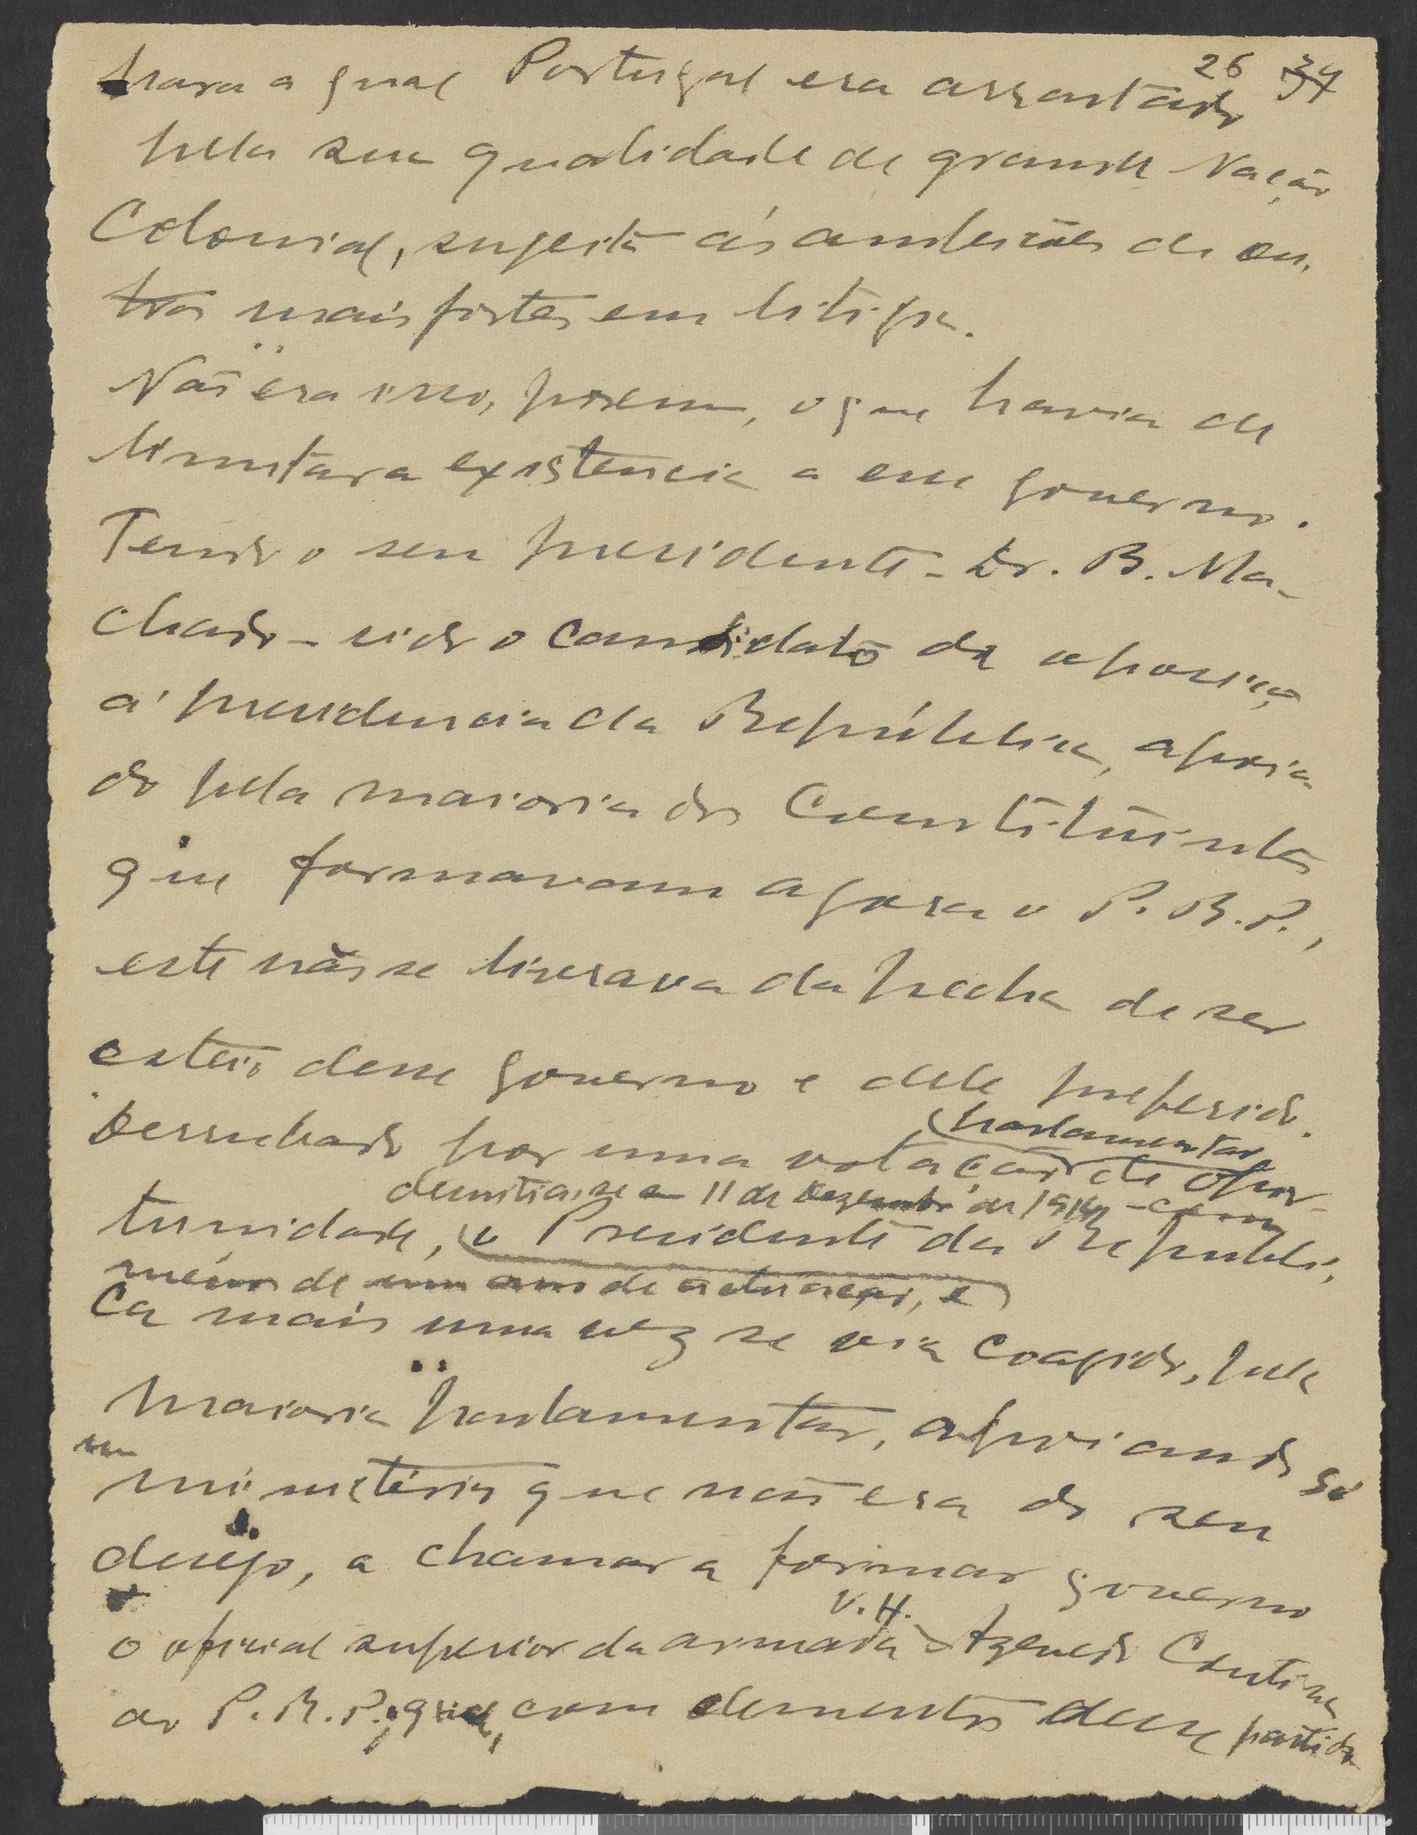 26 34
para a qual Portugal era arrastado
pela sua qualidade de grande Nação
Colonial, sugeita ás ambições de ou-
tras mais fortes em litigio.
Não era isso, porem, o que havia de
limitar a existencia a esse governo.
Tendo o seu presidente - Dr. B. Ma-
chado - sido o candidato da oposição
á presidencia da República, apoia-
do pela maioria dos Constituintes
que formavam agora o P. R. P.,
este não se livrava da pecha de ser
esteio desse governo e dele preferido.
parlamentar
Derrubado por uma votação de opor-
demitia-se em 11 de Dezembro de 1914 - com
tunidade, o Presidente da Republi-
menos de um ano de actuação, e
ca mais uma vez se via coagido, pela
maioria parlamentar, apoiando só
um
ministério que não era do seu
desejo, a chamar a formar governo
V. H.
o oficial superior da armada Azevedo Coutinho
do P. R. P., que, com elementos desse partido